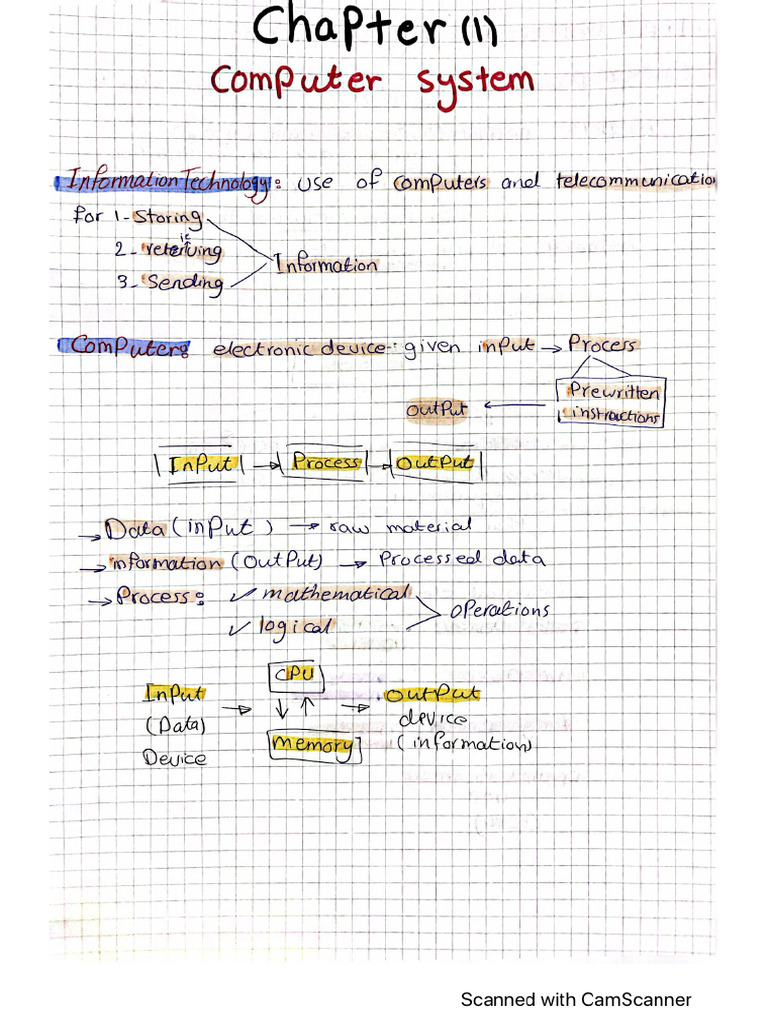 Chapter (1)
Computer system
Information Technology: use of computers and telecommunication
for 1- Storing
2- reterieving
3- Sending
Information
Computer: electronic device: given input → Process
Prewritten
instructions
output ←
Input → Process → Output
→ Data (input) → raw material
→ information (output) → Processed data
→ Process: ✓ mathematical
✓ logical
operations
CPU
Input → ↓ ↑ → output
(Data) device
Device memory (information)
Scanned with CamScanner